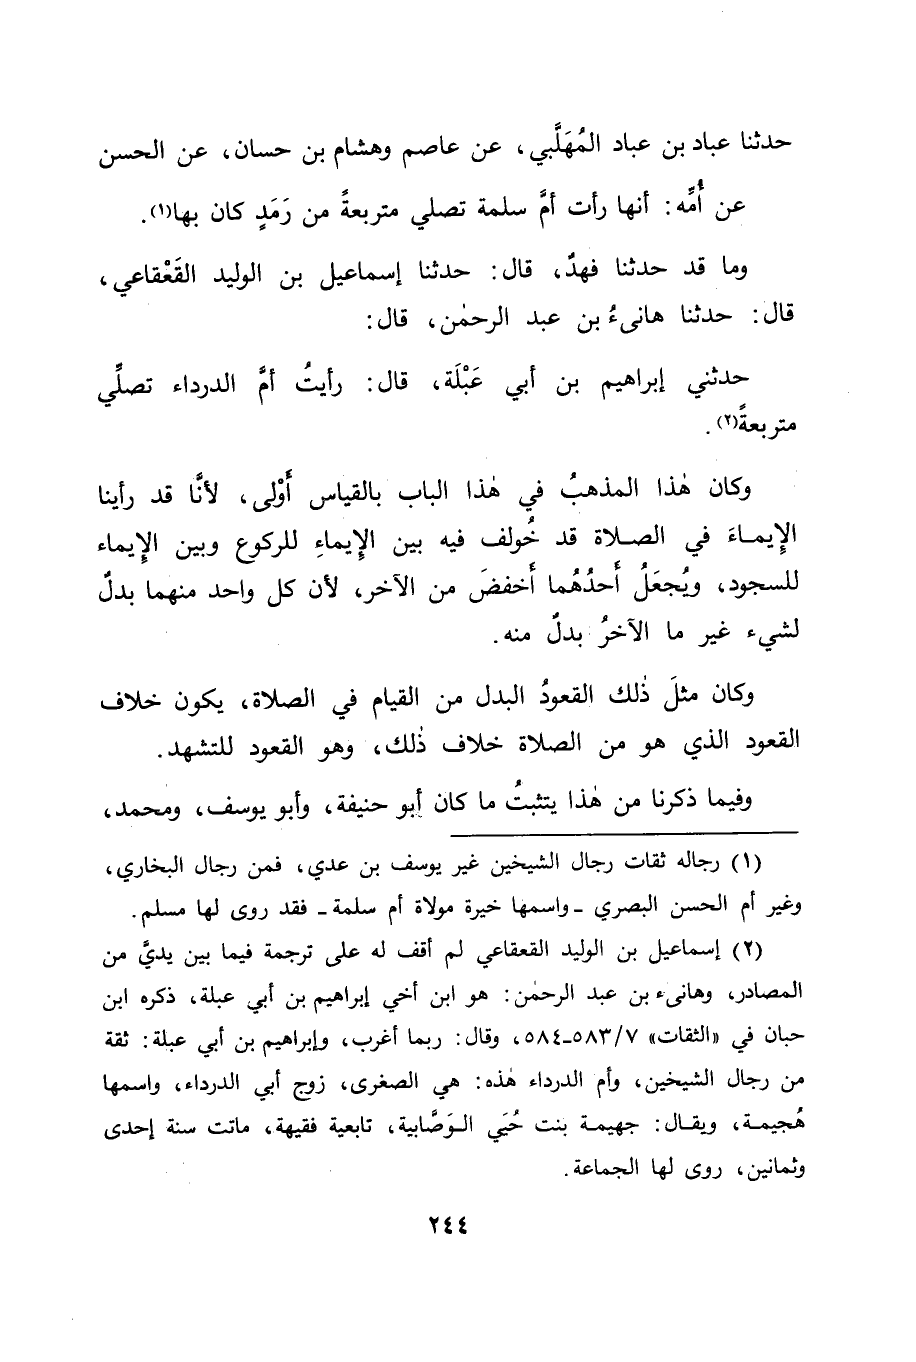 حدثنا عباد بن عباد المُهَلَّبي، عن عاصم وهشام بن حسان، عن الحسن
عن أُمِّه: أنها رأت أمَّ سلمة تصلي متربعةً من رَمَدٍ كان بها(١).
وما قد حدثنا فهدٌ، قال: حدثنا إسماعيل بن الوليد القَعْقاعي،
قال: حدثنا هانىءُ بن عبد الرحمٰن، قال:
حدثني إبراهيم بن أبي عَبْلَة، قال: رأيتُ أمَّ الدرداء تصلِّي
متربعةً(٢).
وكان هٰذا المذهبُ في هٰذا الباب بالقياس أَوْلى، لأنَّا قد رأينا
الإِيماءَ في الصلاة قد خُولف فيه بين الإِيماءِ للركوع وبين الإِيماء
للسجود، ويُجعَلُ أَحدُهُما أَخفضَ من الآخر، لأن كل واحد منهما بدلٌ
لشيء غير ما الآخرُ بدلٌ منه.
وكان مثلَ ذٰلك القعودُ البدل من القيام في الصلاة، يكون خلاف
القعود الذي هو من الصلاة خلاف ذٰلك، وهو القعود للتشهد.
وفيما ذكرنا من هٰذا يتثبتُ ما كان أبو حنيفة، وأبو يوسف، ومحمد،
(١) رجاله ثقات رجال الشيخين غير يوسف بن عدي، فمن رجال البخاري،
وغير أم الحسن البصري - واسمها خيرة مولاة أم سلمة - فقد روى لها مسلم.
(٢) إسماعيل بن الوليد القعقاعي لم أقف له على ترجمة فيما بين يديَّ من
المصادر، وهانىء بن عبد الرحمٰن: هو ابن أخي إبراهيم بن أبي عبلة، ذكره ابن
حبان في «الثقات» ٥٨٣/٧-٥٨٤، وقال: ربما أغرب، وإبراهيم بن أبي عبلة: ثقة
من رجال الشيخين، وأم الدرداء هٰذه: هي الصغرى، زوج أبي الدرداء، واسمها
هُجيمة، ويقال: جهيمة بنت حُيَي الوَصَّابية، تابعية فقيهة، ماتت سنة إحدى
وثمانين، روى لها الجماعة.
٢٤٤